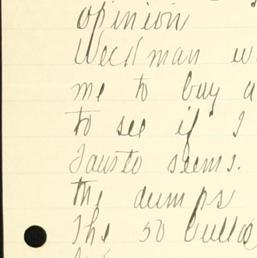 opinion
Weckman w
me to buy a
to see if I
Fausto seems.
the dumps
The 50